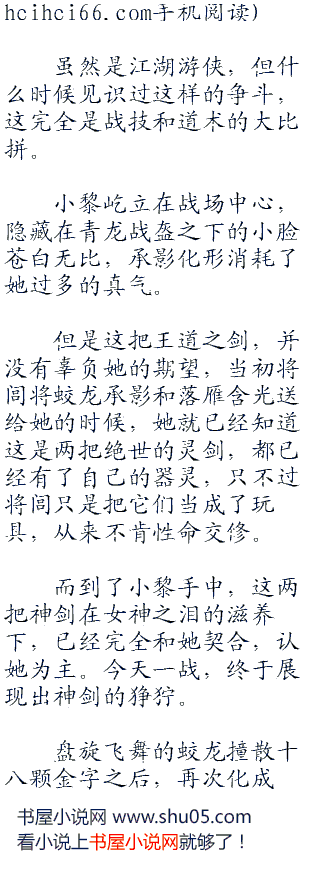 hcihci66.com手机阅读)
虽然是江湖游侠，但什
么时候见识过这样的争斗，
这完全是战技和道术的大比
拼。
小黎屹立在战场中心，
隐藏在青龙战盔之下的小脸
苍白无比，承影化形消耗了
她过多的真气。
但是这把王道之剑，并
没有辜负她的期望，当初将
闾将蛟龙承影和落雁含光送
给她的时候，她就已经知道
这是两把绝世的灵剑，都已
经有了自己的器灵，只不过
将闾只是把它们当成了玩
具，从来不肯性命交修。
而到了小黎手中，这两
把神剑在女神之泪的滋养
下，已经完全和她契合，认
她为主。今天一战，终于展
现出神剑的狰狞。
盘旋飞舞的蛟龙撞散十
八颗金字之后，再次化成
书屋小说网 www.shu05.com
看小说上书屋小说网就够了！